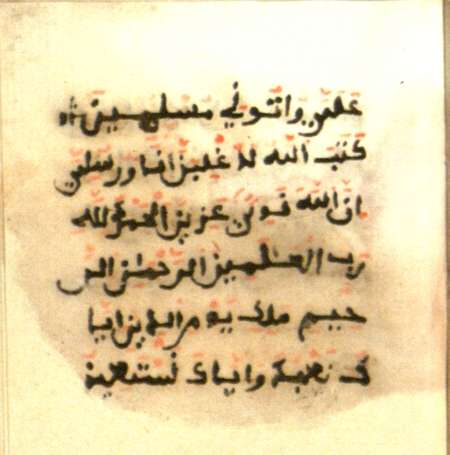 علي واتوني مسلمين
كتب الله لاغلبن انا ورسلي
ان الله قوي عزيز الحمد لله
رب العلمين الرحمن الر
حيم ملك يوم الدين ايا
ك نعبد واياك نستعين